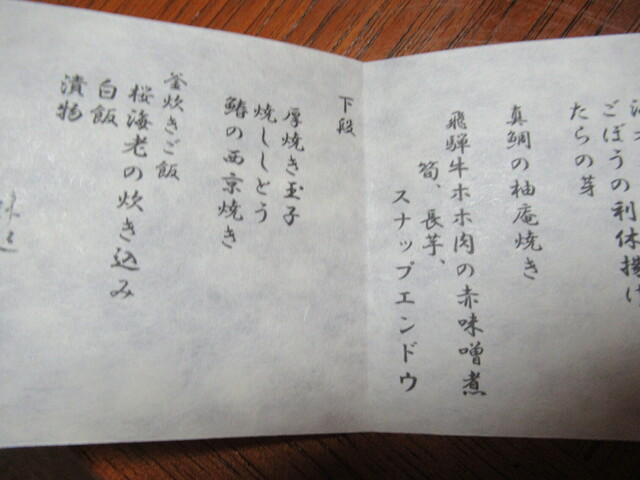 ごぼうの利休揚げ
たらの芽
真鯛の柚庵焼き
飛騨牛ホホ肉の赤味噌煮
筍、長芋、
スナップエンドウ
下段
厚焼き玉子
焼ししとう
鰆の西京焼き
釜炊きご飯
桜海老の炊き込み
白飯
漬物